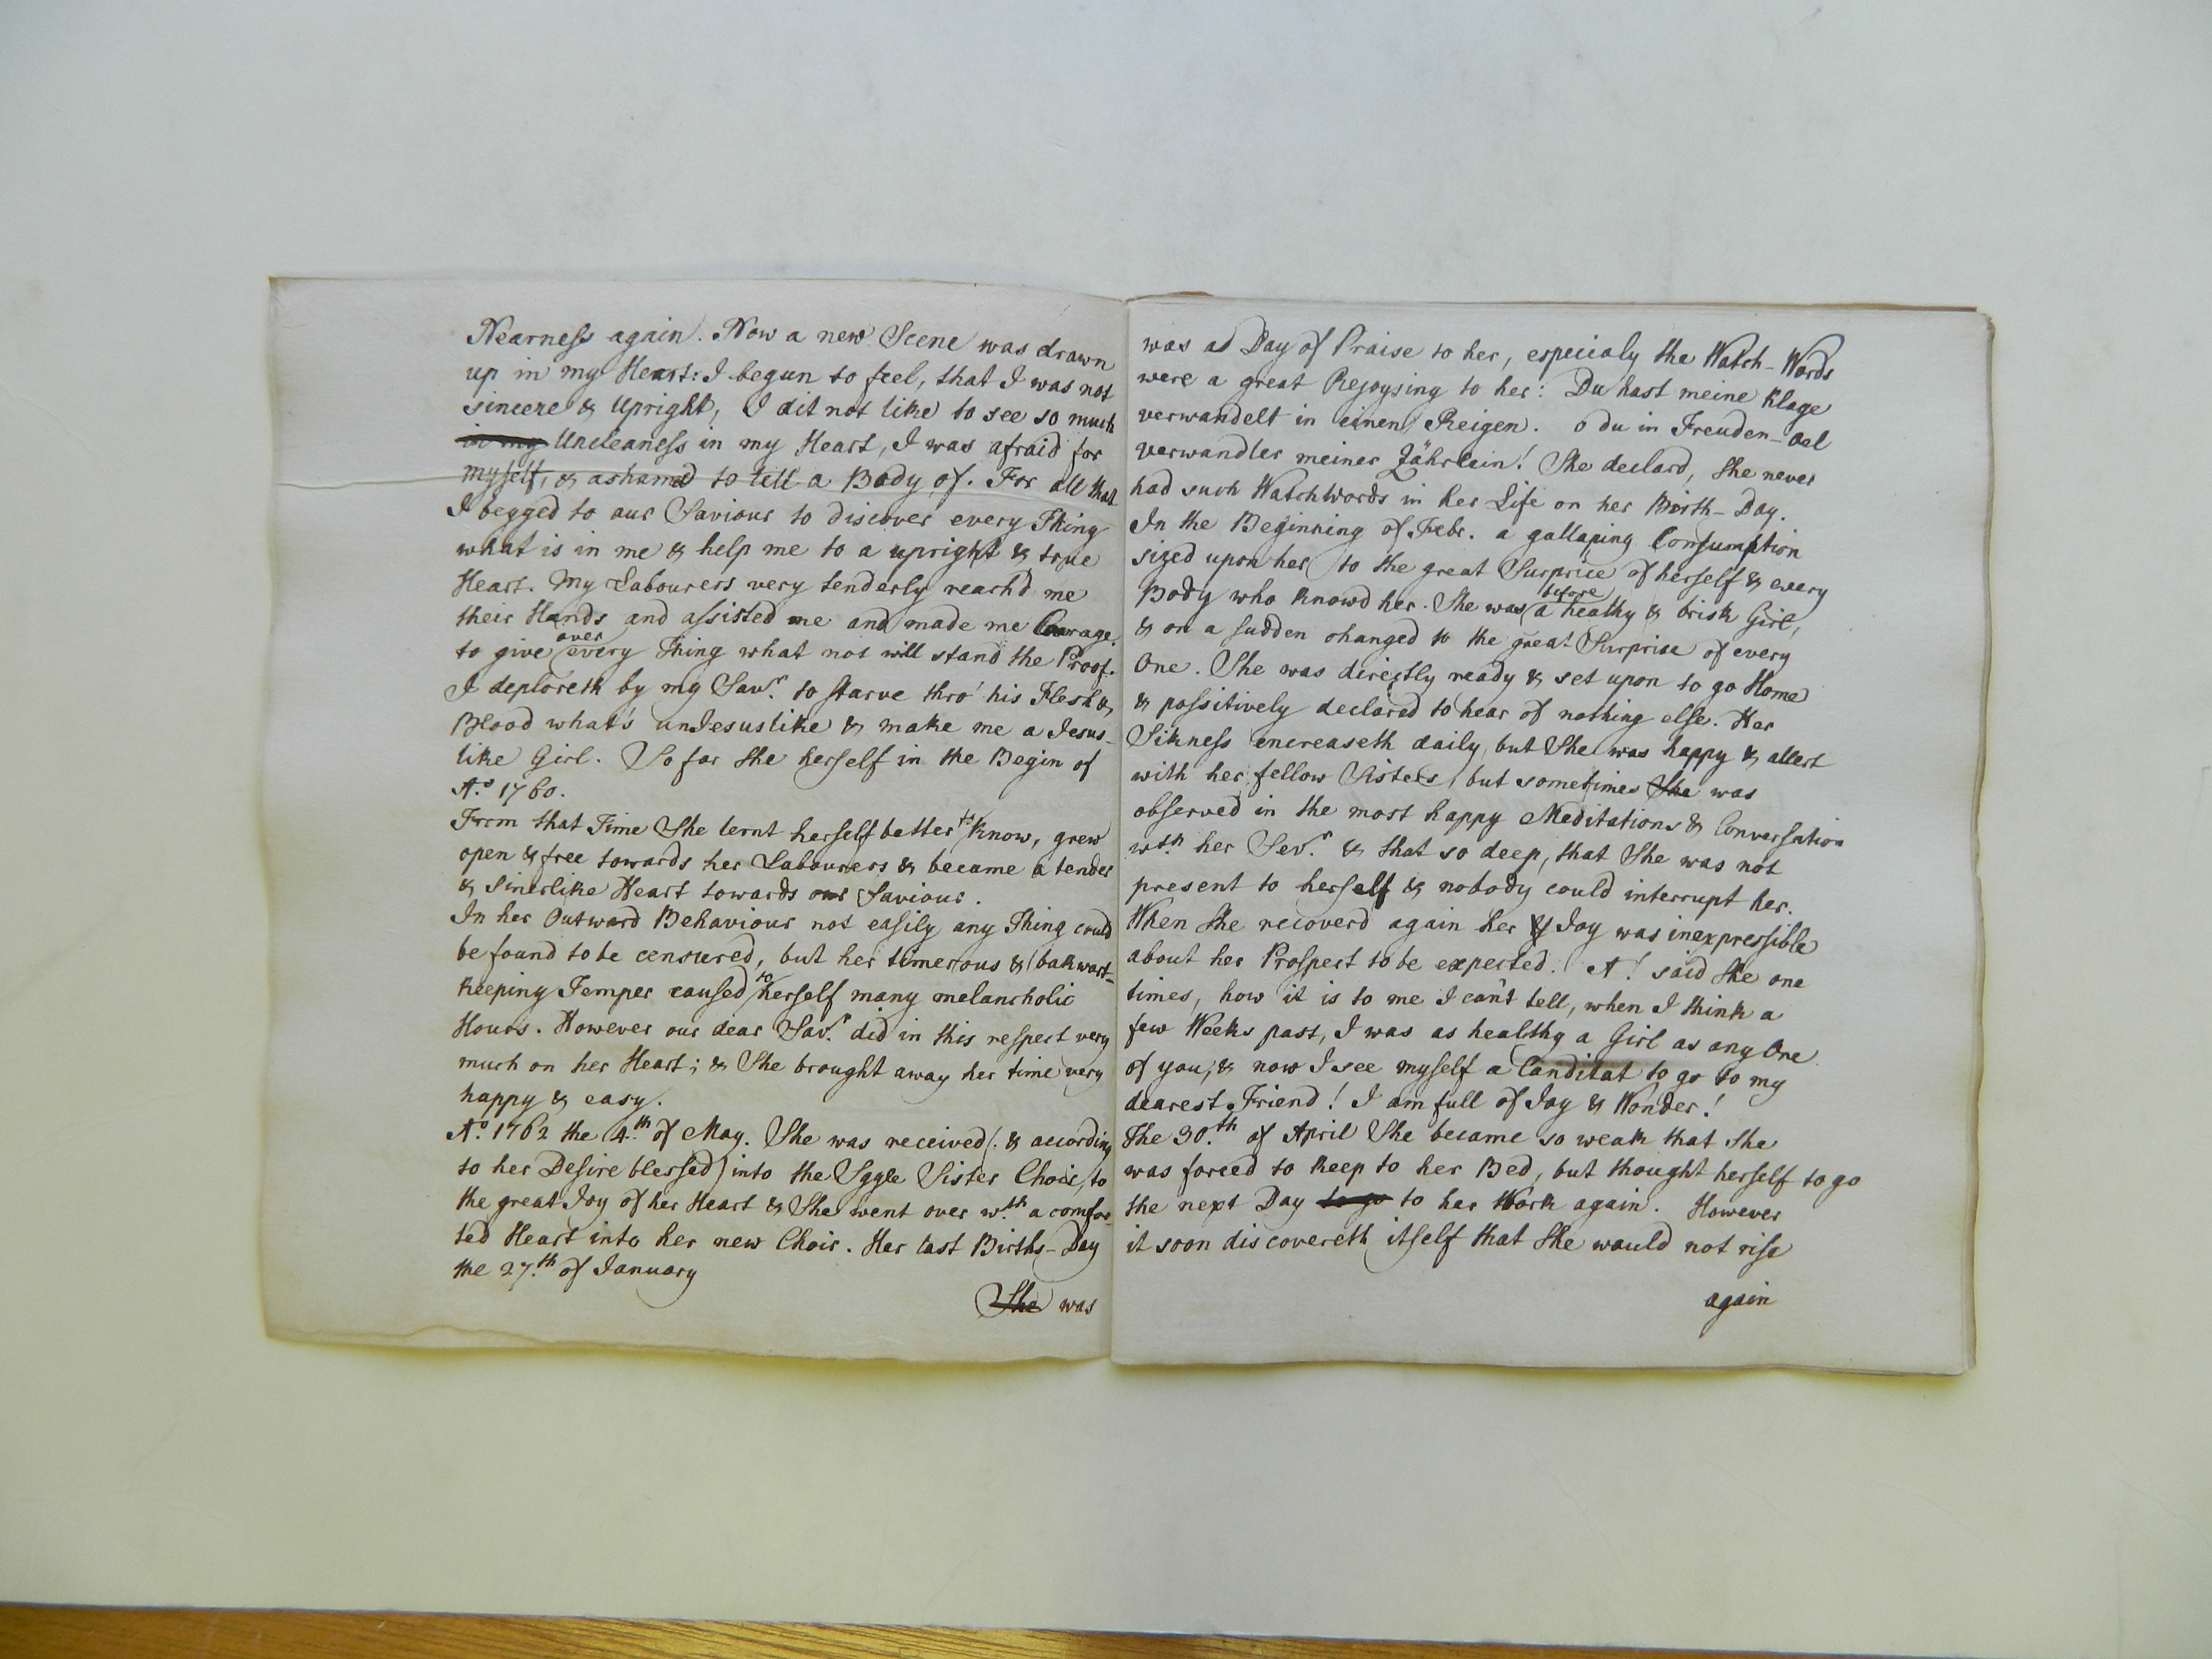 Nearness again. Now a new Scene was drawn
up in my Heart: I begun to feel, that I was not
sincere & Upright, I dit not like to see so much
in my Uncleaness in my Heart, I was afraid for
myself, & ashamed to tell a Body of. For all that
I begged to our Saviour to discover every Thing
what is in me & help me to a upright & true
Heart. My Labourers very tenderly reach'd me
their Hands and assisted me and made me Courage
to give over every Thing what not will stand the Proof.
I deploreth by my Savr. to starve thro' his Flesh &
Blood what's unJesuslike & make me a Jesus-
like Girl. So far She herself in the Begin of
Ao. 1760.
From that Time She lernt herself better to know, grew
open & free towards her Labourers & became a tender
& Sinerlike Heart towards our Saviour.
In her Outward Behaviour not easily any Thing could
be found to be censured, but her timerous & bakwart-
keeping Temper caused to herself many melancholic
Hours. However our dear Savr. did in this respect very
much on her Heart; & She brought away her time very
happy & easy.
Ao. 1762 the 4th. of May. She was received (. & according
to her Desire blessed) into the Sggle Sister Choir, to
the great Joy of her Heart & She went over wth. a comfor-
ted Heart into her new Choir. Her last Births-Day
the 27th. of January
She was
was ad Day of Praise to her, especialy the Watch-Words
were a great Rejoysing to her: Du hast meine Klage
verwandelt in einen Reigen. o du in Freuden-Oel
verwandler meiner Zährlein! She declard, She never
had such Watchwords in her Life on her Birth-Day.
In the Beginning of Febr. a gallaping Consumption
sized upon her to the great Surprice of herself & every
Body who knowd her. She was before a healhy & brisk Girl,
& on a sudden changed to the great Surprise of every
One. She was directly ready & set upon to go Home
& possitively declared to hear of nothing else. Her
Sikness encreaseth daily, but She was happy & allert
with her fellow Sisters, but sometimes She was
observed in the most happy Meditations & Conversation
wth. her Sevr. & that so deep, that She was not
present to herself & nobody could interrupt her.
When She recoverd again her Joy was inexpressible
about her Prospect to be expected. A! said She one
times, how it is to me I can't tell, when I think a
few Weeks past, I was as healthy a Girl as any One
of you, & now I see myself a Canditat to go to my
dearest Friend! I am full of Joy & Wonder!
The 30th. of April She became so weak that She
was forced to keep to her Bed, but thought herself to go
the next Day to go to her Work again. However
it soon discovereth itself that She would not rise
again